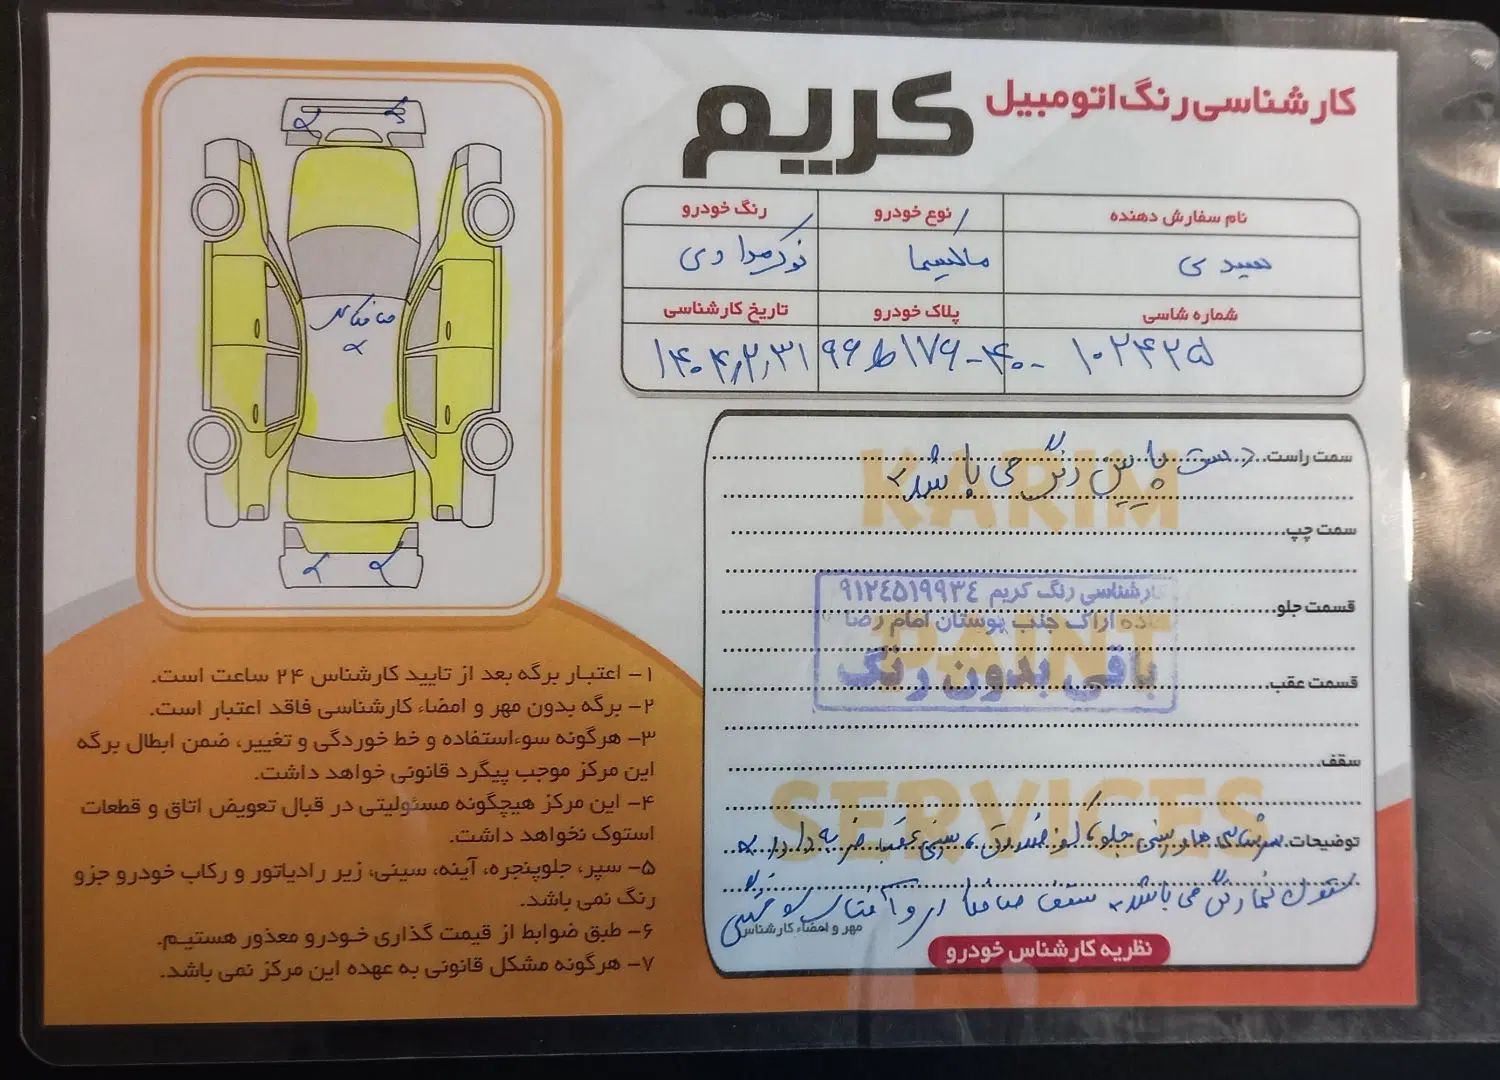 کارشناسی رنگ اتومبیل کریم
نام سفارش دهنده
نوع خودرو
رنگ خودرو
سیدی
ماکسیما
نوک مدادی
شماره شاسی
پلاک خودرو
تاریخ کارشناسی
۱۰۲۴۲۵
۹۶ ط ۱۷۶-۴۰
۱۴۰۴٫۲٫۳۱
صافکاری
سمت راست. درست پایین رنگ می باشد
KARIM
سمت چپ
کارشناسی رنگ کریم ۹۱۲۴۵۱۹۹۳۴
قسمت جلو
جاده اراک جنب بوستان امام رضا
PAINT
باقی بدون رنگ
قسمت عقب
سقف
SERVICES
توضیحات. سرشاسی ها و سینی جلو، کف صندوق، سینی عقب ضربه دارد
ستون رنگ می باشد سقف صافکاری و آفتاب سوختگی
مهر و امضاء کارشناس
نظریه کارشناس خودرو
۱- اعتبار برگه بعد از تایید کارشناس ۲۴ ساعت است.
۲- برگه بدون مهر و امضاء کارشناسی فاقد اعتبار است.
۳- هرگونه سوءاستفاده و خط خوردگی و تغییر، ضمن ابطال برگه
این مرکز موجب پیگرد قانونی خواهد داشت.
۴- این مرکز هیچگونه مسئولیتی در قبال تعویض اتاق و قطعات
استوک نخواهد داشت.
۵- سپر، جلوپنجره، آینه، سینی، زیر رادیاتور و رکاب خودرو جزو
رنگ نمی باشد.
۶- طبق ضوابط از قیمت گذاری خودرو معذور هستیم.
۷- هرگونه مشکل قانونی به عهده این مرکز نمی باشد.